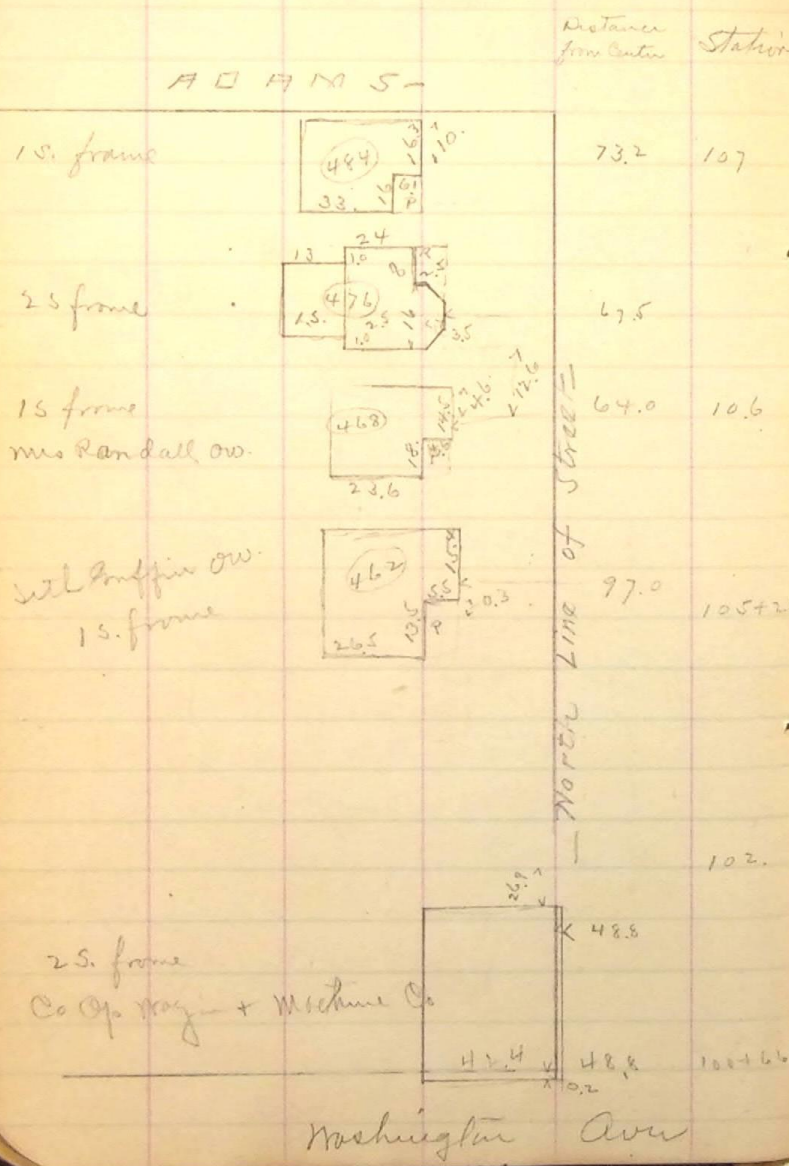 Distance
from Center
Station
ADAMS-
1 S. frame
484
33.
16
16.3
110.
73.2
107
2 S frame
24
13
1.0
8
476
1.5.
2.5
16
1.0
3.5
67.5
1 S frame
Mrs Randall ow.
468
14.5
4.6
72.6
18.
23.6
64.0
10.6
Seth Griffin ow.
1 S. frame
462
15.4
5.5
0.3
13.5
8
26.5
97.0
105+2
— North Line of Street —
102.
26.9
48.8
2 S. frame
Co Op Wagon + Machine Co
48.8
100+66
0.2
Washington Ave